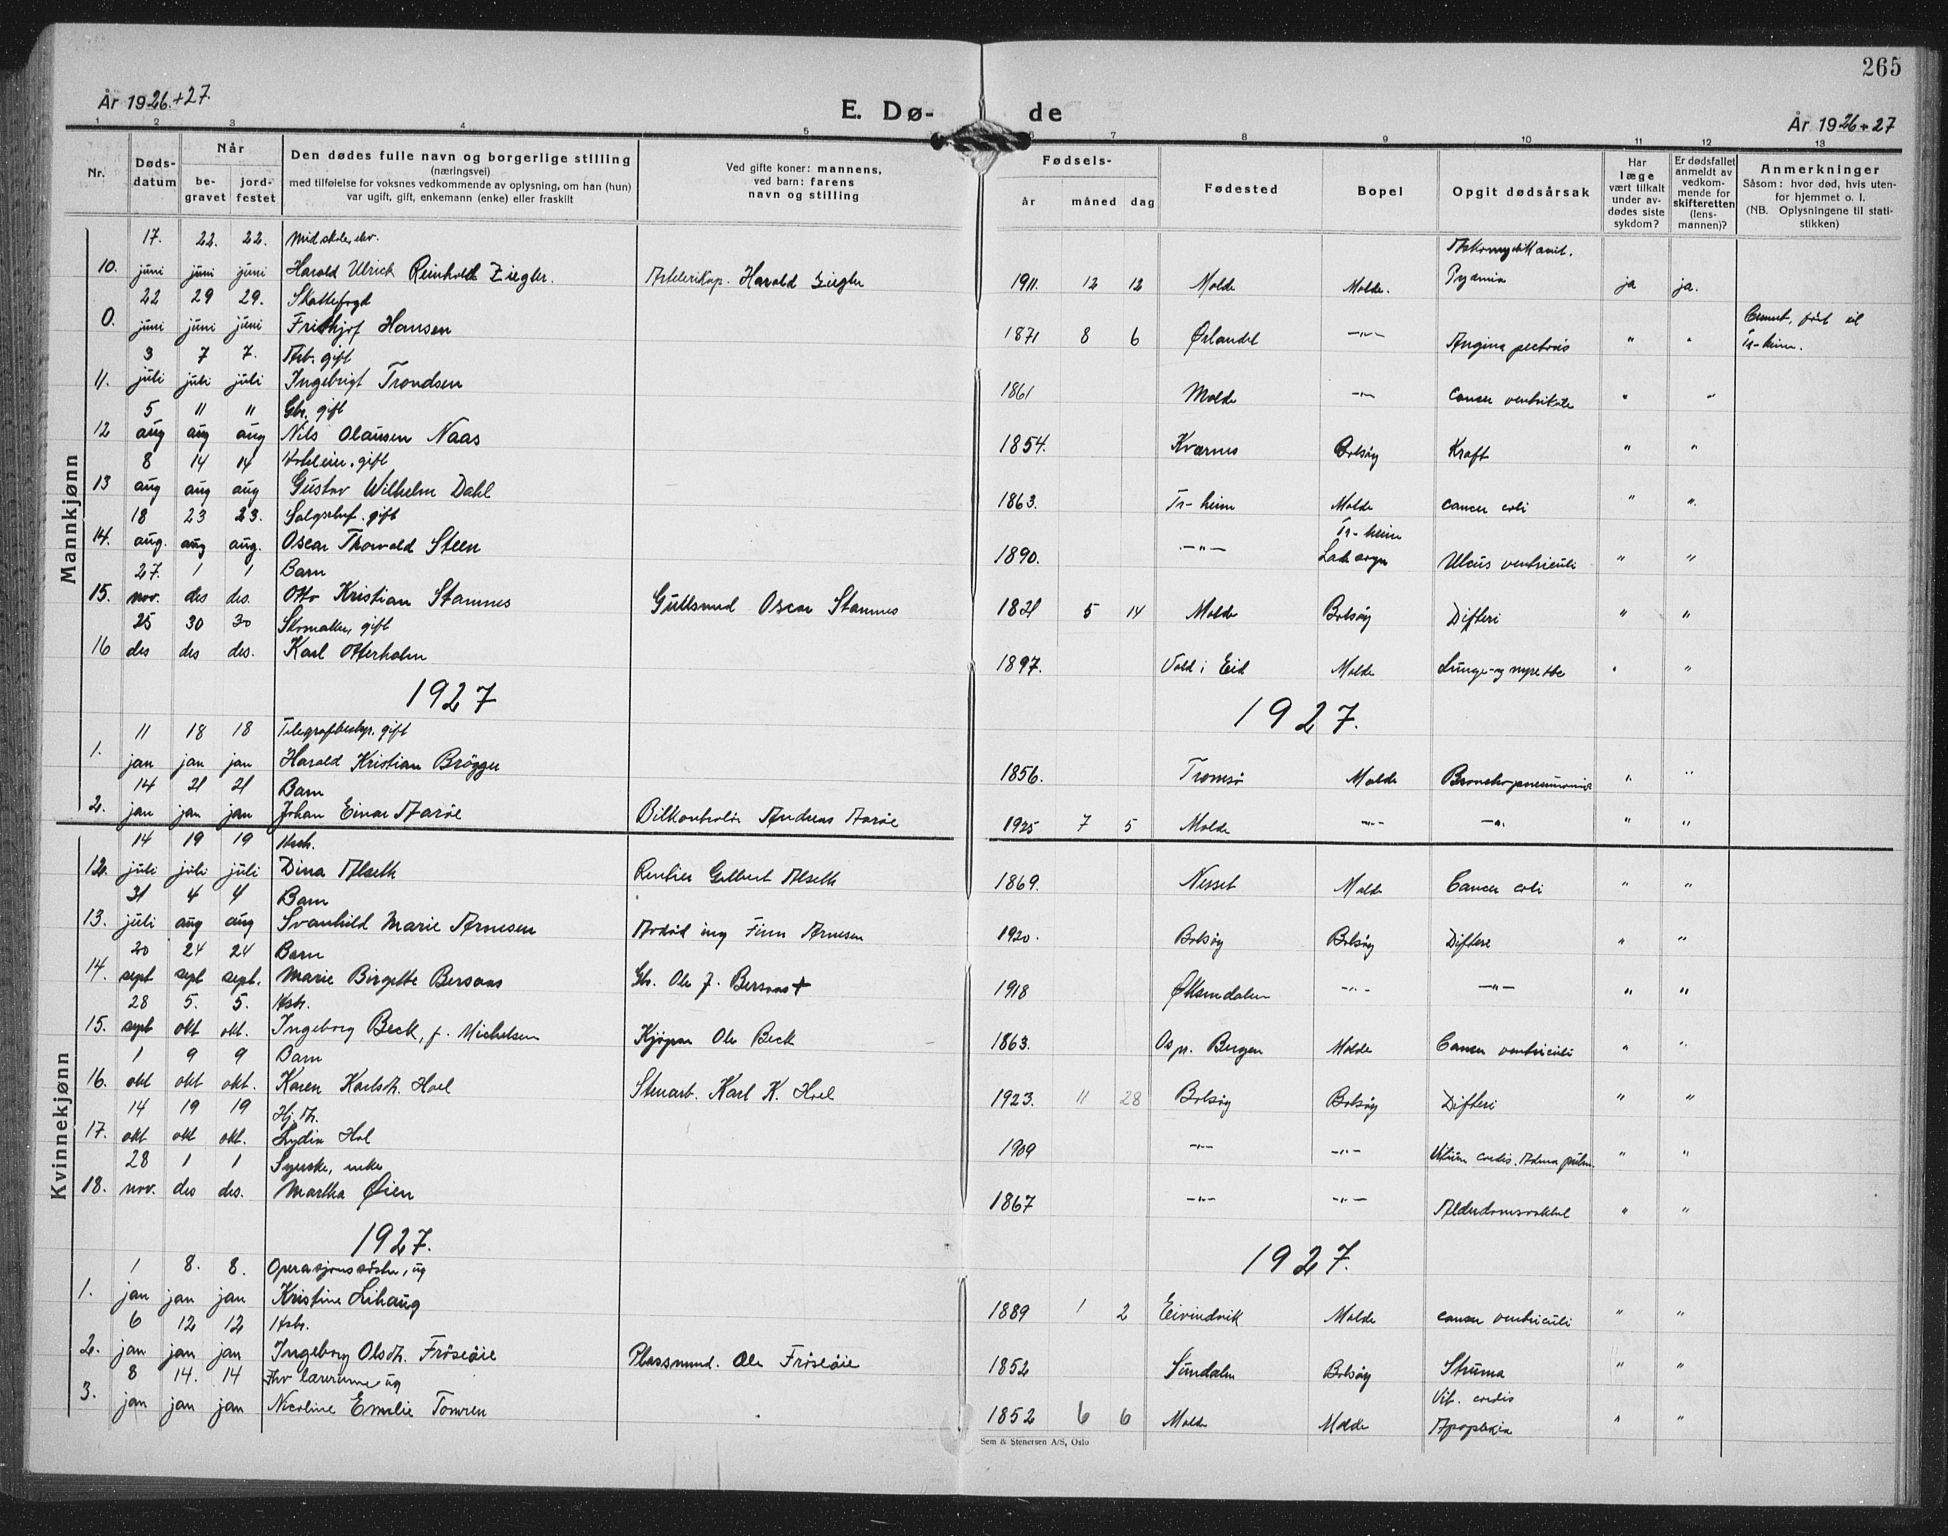 265
År 1926+27.
E. Dø-
de
År 1926+27
1 2 3 4 5 6 7 8 9 10 11 12 13
Nr.
Døds-
datum
Når
be-
gravet
jord-
festet
Den dødes fulle navn og borgerlige stilling
(næringsvei)
med tilføielse for voksnes vedkommende av oplysning, om han (hun)
var ugift, gift, enkemann (enke) eller fraskilt
Ved gifte koner: mannens,
ved barn: farens
navn og stilling
Fødsels-
år måned dag
Fødested
Bopel
Opgit dødsårsak
Har
læge
vært tilkalt
under av-
dødes siste
sykdom?
Er dødsfallet
anmeldt av
vedkom-
mende for
skifteretten
(lens-
mannen)?
Anmerkninger
Såsom: hvor død, hvis uten-
for hjemmet o. l.
(NB. Oplysningene til stati-
stikken)
Mannkjønn
17. 22. 22. Midskoleelev.
10. juni juni juni Harald Ulrich Reinholdt Ziegler. Harald Ziegler 1911 12 12 Molde Molde. Pydmia ja ja.
22 29 29. Skattefogd
0. juni juni juni Frithjof Hansen 1871 8 6 Ørlandet —"— Angina pectoris " " til Tr-heim.
3 7 7. Arb. gift
11. juli juli juli Ingebrigt Trondsen 1861 Molde —"— cancer ventrikule " "
5 11 11 Gbr. gift
12 aug aug aug Nils Olausen Naas 1854. Kværnes Bolsøy Kraft " "
8 14 14 Hoteleier. gift
13 aug aug aug Gustav Wilhelm Dahl 1863. Tr-heim Molde cancer coli " "
18 23 23. gift
14. aug. aug aug. Oscar Thorvald Steen 1890. —"— Tr-heim Ulcus ventriculi " "
27. 1 1 Barn
15. nov. des des. Otto Kristian Stamnes Gullsmed Oscar Stamnes 1821 5 14 Molde Bolsøy Difteri " "
25 30 30 Skomaker, gift
16 des des des. Karl Otterholm 1897. Vold i Eid Molde Lunge- og nyre tbc " "
1927
1927.
11 18 18 Telegrafbestyr. gift
1. jan jan jan Harald Kristian Brögger 1856. Tromsø Molde Bronchopneumonia " "
14 21 21 Barn
2. jan jan jan Johan Einar Aarøe Bilkontrolør Andreas Aarøe 1925 7 5 Molde —"— —"— " "
Kvinnekjønn
14 19 19 Hstr.
12. juli juli juli Dina Alseth Rentier Gilbert Alseth 1869. Nesset Molde Cancer coli " "
31 4 4 Barn
13. juli aug aug Svanhild Marie Arnesen ing Finn Arnesen 1920. Bolsøy Bolsøy Difteri " "
20 24 24 Barn
14. sept sept sept. Marie Birgitte Bersaas Gbr. Ole J. Bersaas + 1918 Øksendalen —"— —"— " "
28 5. 5. Hstr.
15. sept okt okt. Ingeborg Beck, f. Michelsen Kjøpm Ole Beck 1863. Os pr. Bergen Molde Cancer ventriculi " "
1 9 9 Barn
16. okt okt okt. Karen Karlsdt. Hoel Stenarb. Karl K. Hoel 1923. 11 28 Bolsøy Bolsøy Difteri " "
14 19 19 Hj. dt.
17. okt okt okt. Lydia Hol 1909 —"— —"— Vitium cordis. Ødema pulm. " "
28 1 1 Syerske, enke
18. nov. des des. Martha Øien 1867 —"— —"— " "
1927.
1927.
1 8. 8. Operasjonssøster, ug
1. jan jan jan Kristine Lihaug 1889 1 2 Eivindvik Molde cancer ventriculi " "
6 12 12 Hstr.
2. jan jan jan Ingeborg Olsdt. Frøseøie Plassmand. Ole Frøseøie 1852 Sundalen Bolsøy Struma " "
8 14. 14 Fhv lærerinne ug Vit. cordis
3. jan jan jan Nicoline Emelie Tomren 1852 6 6 Molde Molde Apoplexia " "
Sem & Stenersen A/S, Oslo